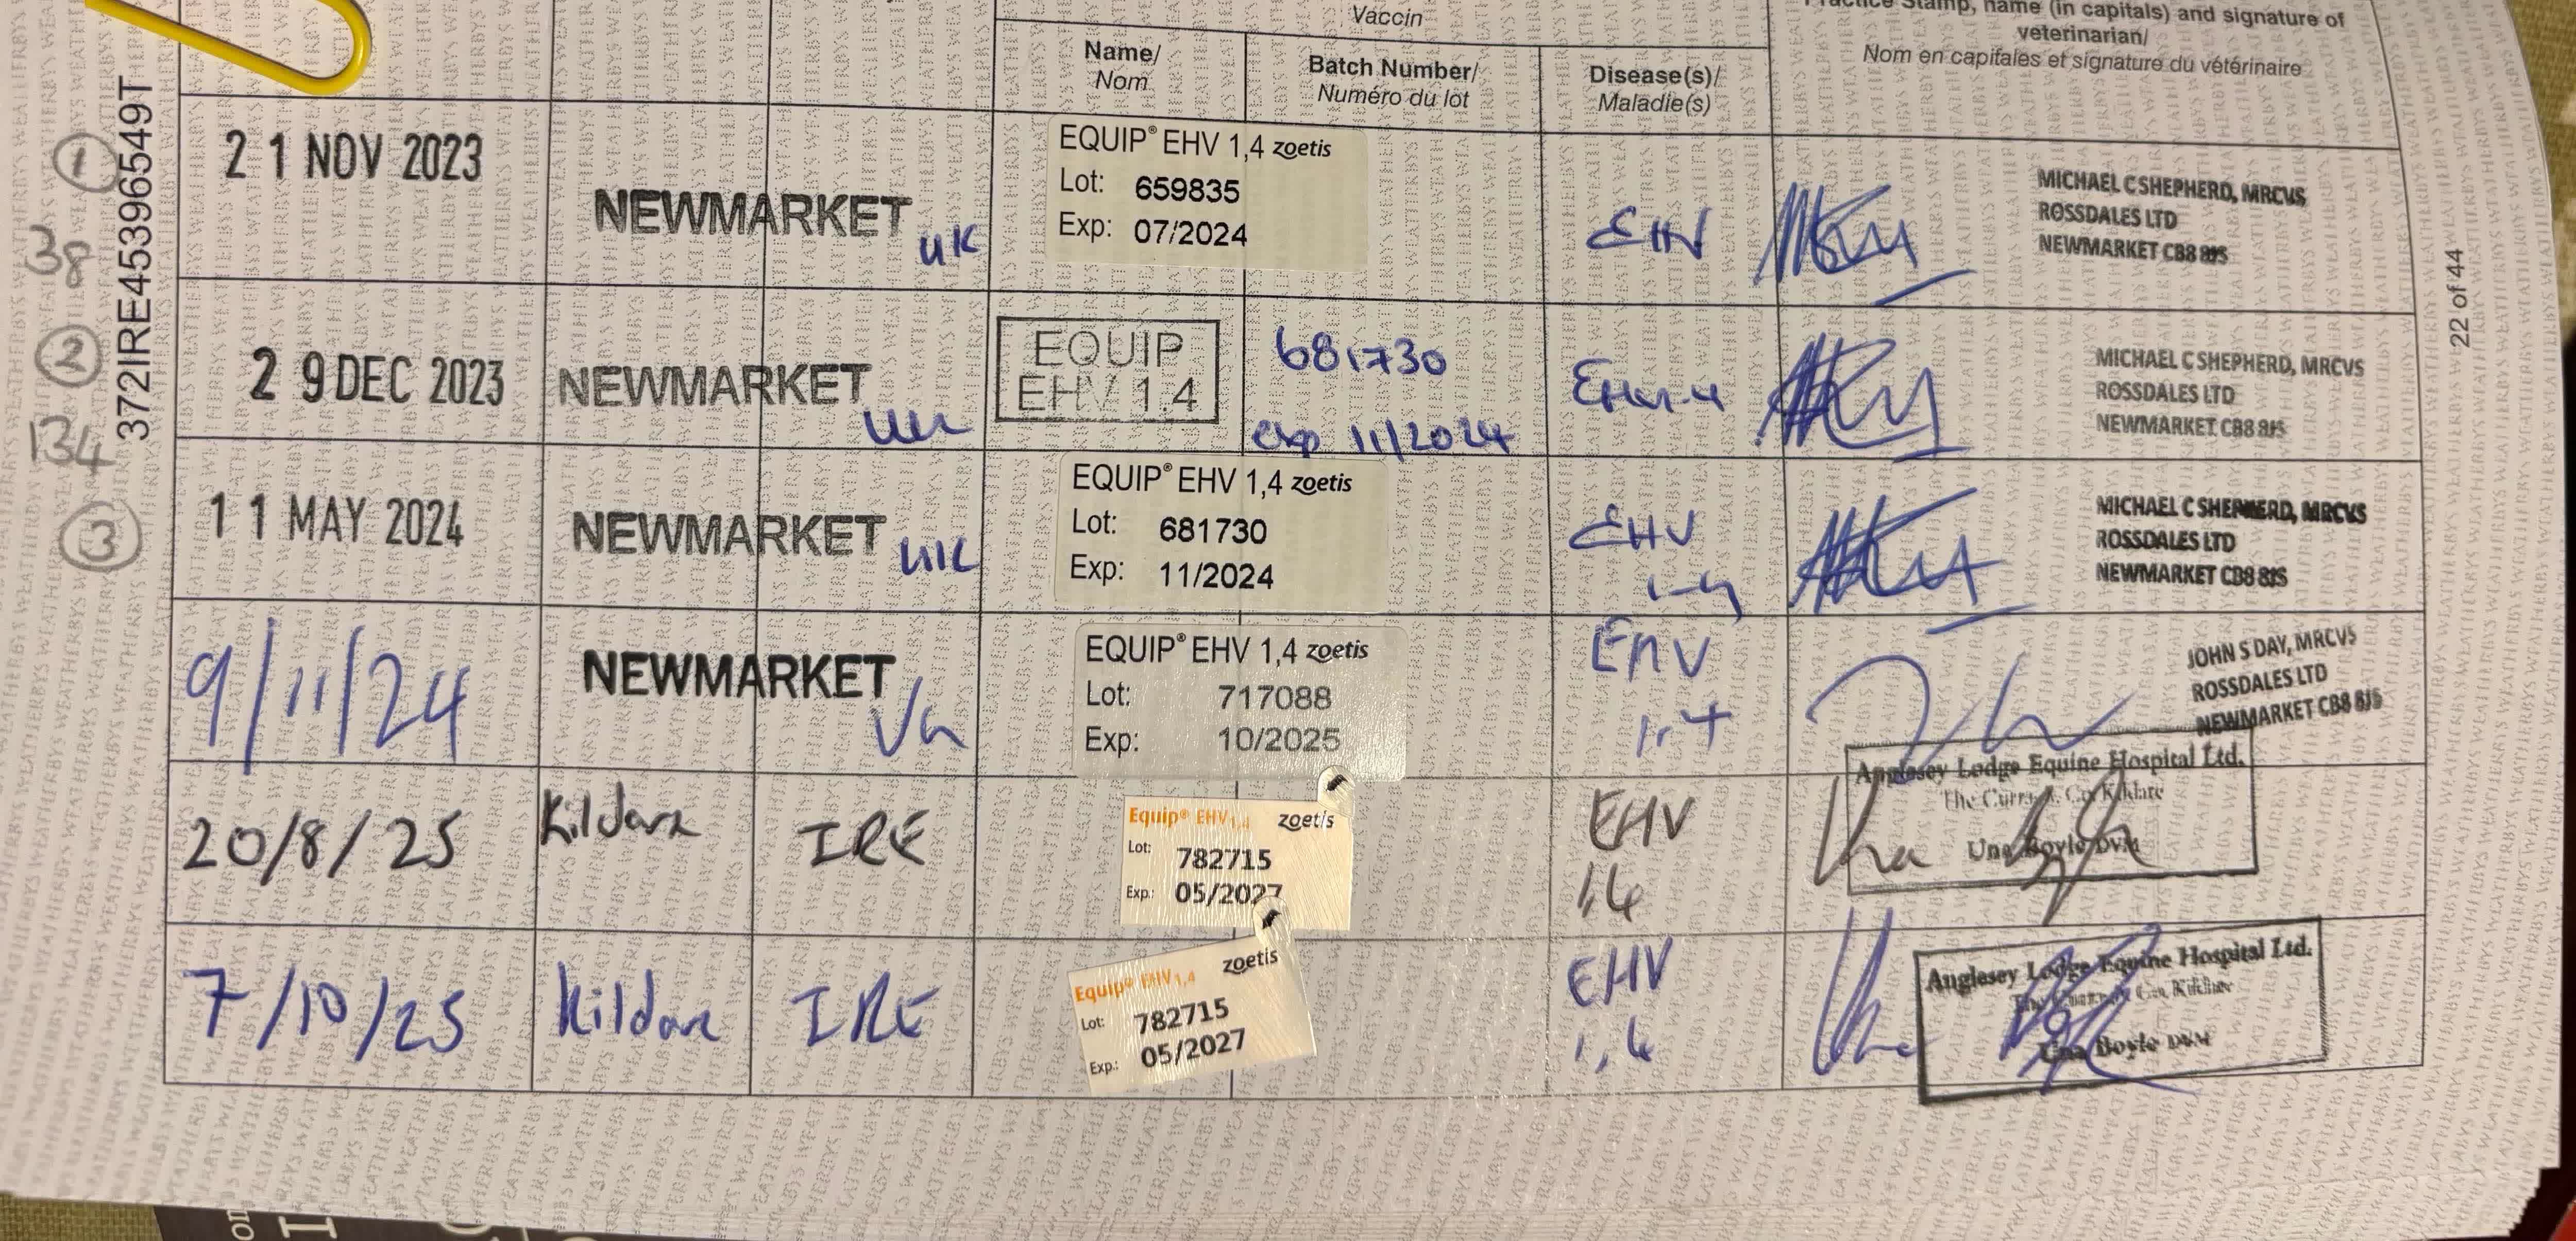 Vaccin
Practice Stamp, name (in capitals) and signature of
veterinarian/
Nom en capitales et signature du vétérinaire
Name/
Nom
Batch Number/
Numéro du lot
Disease(s)/
Maladie(s)
372IRE45396549T
22 of 44
1
38
2
134
3
21 NOV 2023
NEWMARKET UK
EQUIP® EHV 1,4 zoetis
Lot: 659835
Exp: 07/2024
EHV
MICHAEL C SHEPHERD, MRCVS
ROSSDALES LTD
NEWMARKET CB8 8JS
29 DEC 2023
NEWMARKET UK
EQUIP
EHV 1.4
681730
exp 11/2024
EHV1-4
MICHAEL C SHEPHERD, MRCVS
ROSSDALES LTD
NEWMARKET CB8 8JS
11 MAY 2024
NEWMARKET UK
EQUIP® EHV 1,4 zoetis
Lot: 681730
Exp: 11/2024
EHV
1-4
MICHAEL C SHEPHERD, MRCVS
ROSSDALES LTD
NEWMARKET CB8 8JS
9/11/24
NEWMARKET UK
EQUIP® EHV 1,4 zoetis
Lot: 717088
Exp: 10/2025
EHV
1,4
JOHN S DAY, MRCVS
ROSSDALES LTD
NEWMARKET CB8 8JS
20/8/25
Kildare
IRE
Equip® EHV 1,4 zoetis
Lot: 782715
Exp.: 05/2027
EHV
1,4
Anglesey Lodge Equine Hospital Ltd.
The Curragh, Co. Kildare
Una Boyle DVM
7/10/25
Kildare
IRE
Equip® EHV 1,4 zoetis
Lot: 782715
Exp.: 05/2027
EHV
1,4
Anglesey Lodge Equine Hospital Ltd.
The Curragh, Co. Kildare
Una Boyle DVM